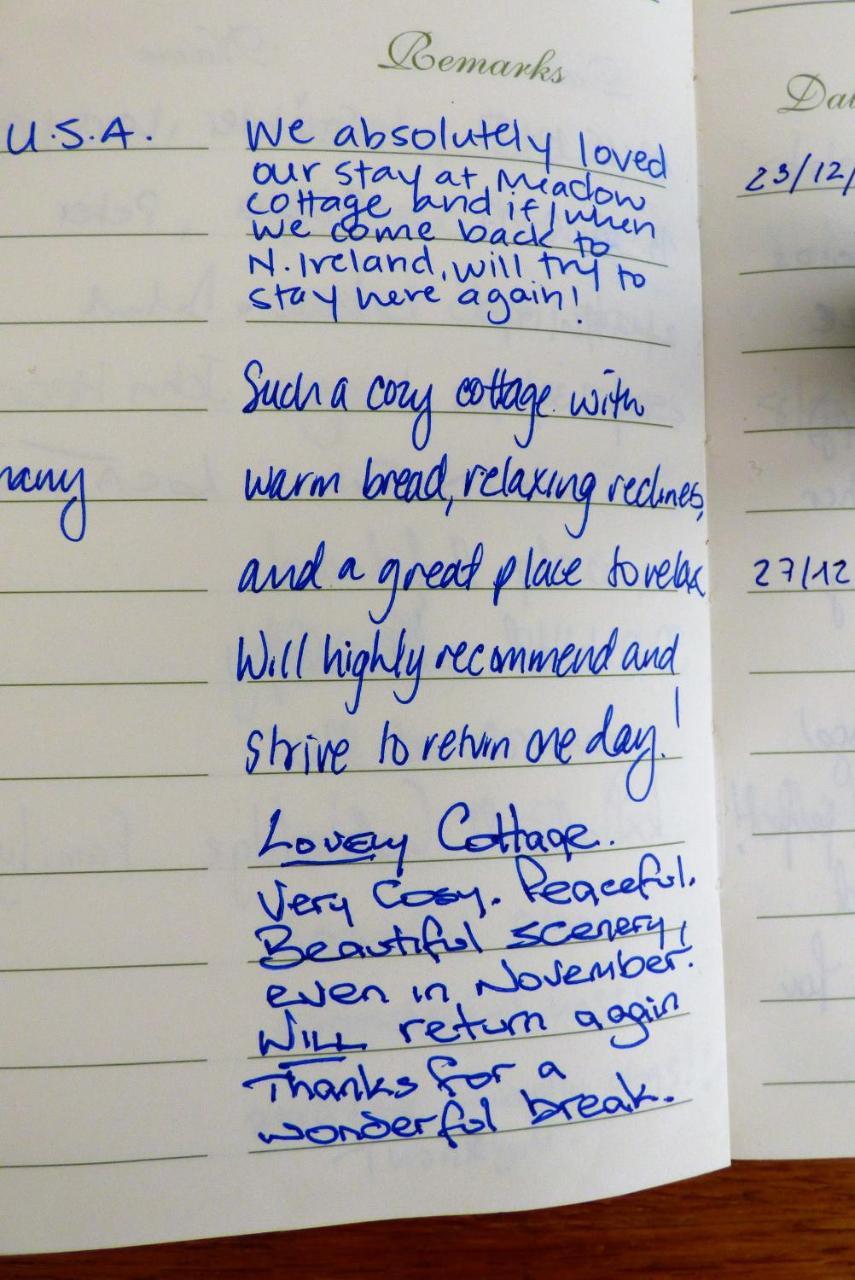 Remarks
U.S.A.
We absolutely loved
our stay at Meadow
cottage and if/when
we come back to
N. Ireland, will try to
stay here again!
Such a cozy cottage with
many
warm bread, relaxing recliners,
and a great place to relax
Will highly recommend and
strive to return one day!
Lovely Cottage.
Very Cosy. Peaceful.
Beautiful scenery,
even in November.
WILL return again
Thanks for a
wonderful break.
Dat
23/12/
27/12